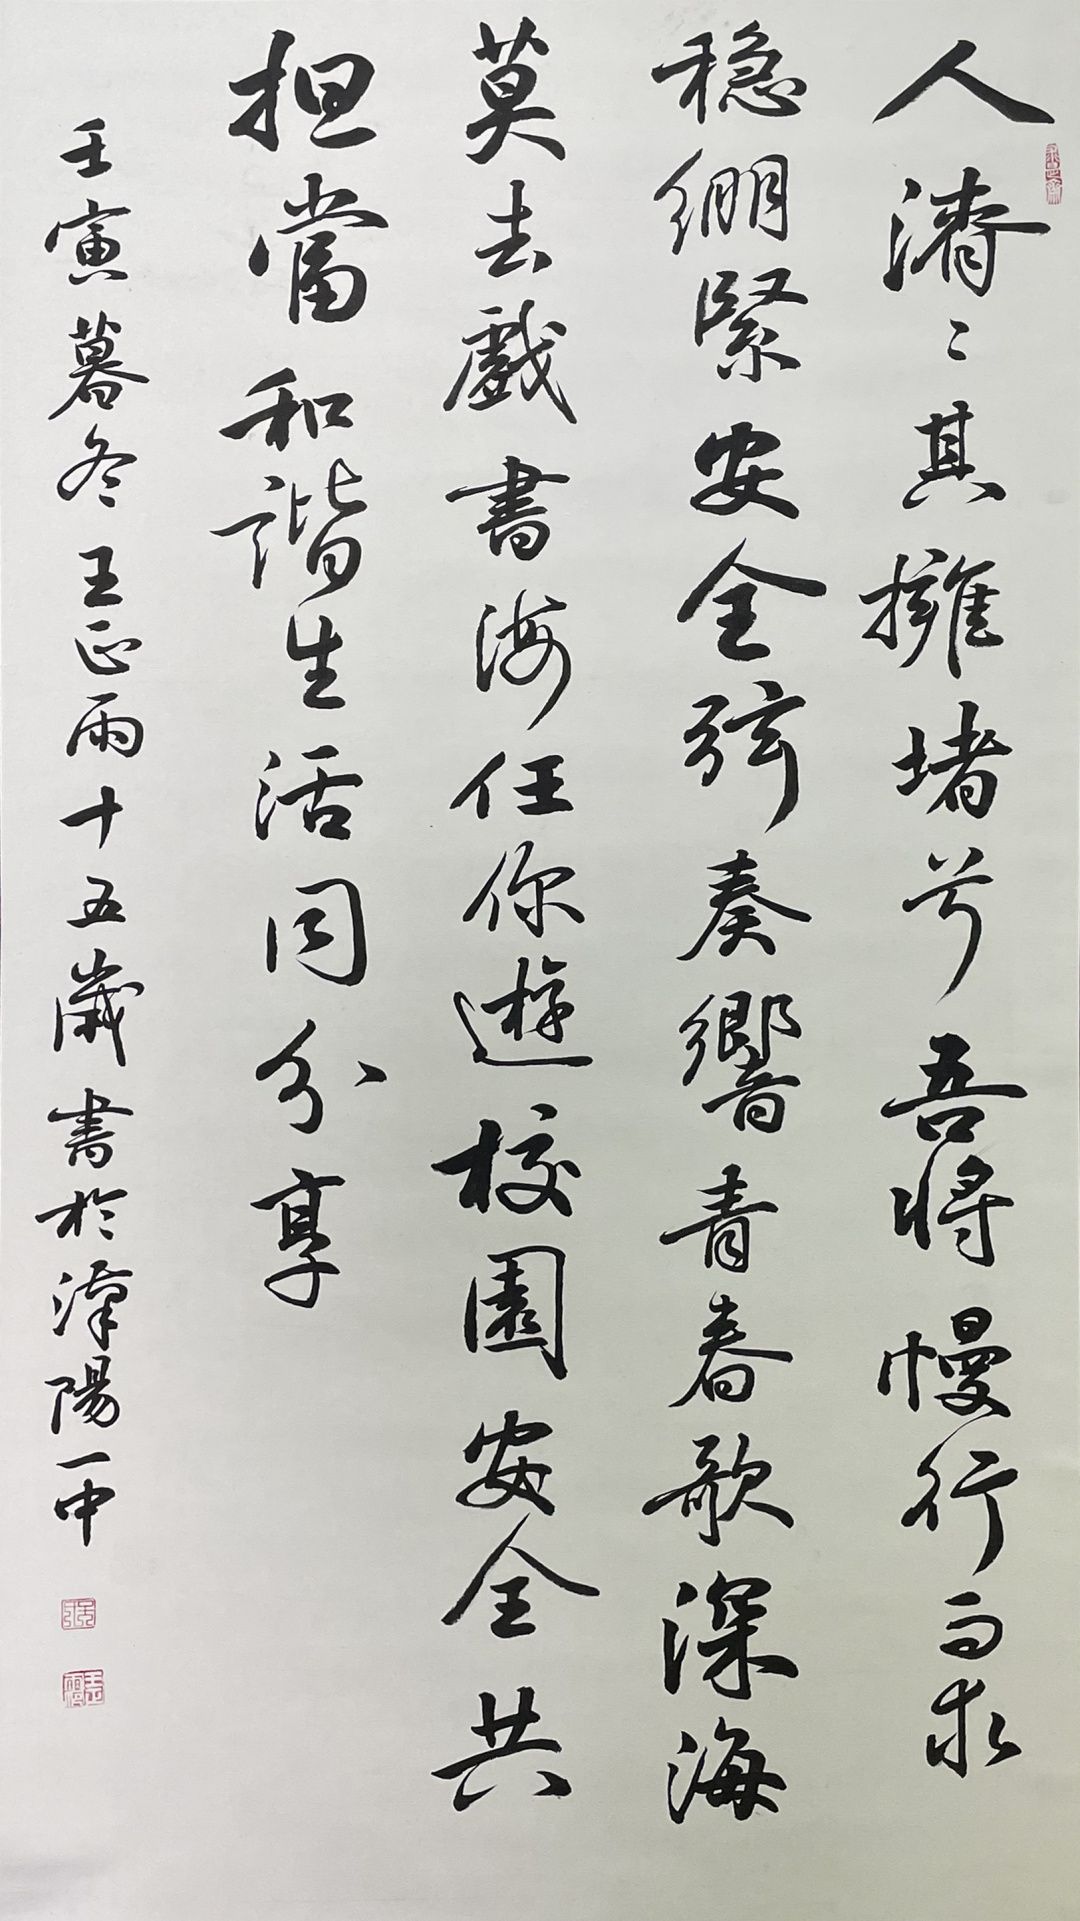 人濟〻其擁堵兮吾將慢行而求
稳綳緊安全弦奏響青春歌深海
莫去戲書海任你遊校園安全共
担當和諧生活同分享
壬寅暮冬王正雨十五歲書於漳陽一中